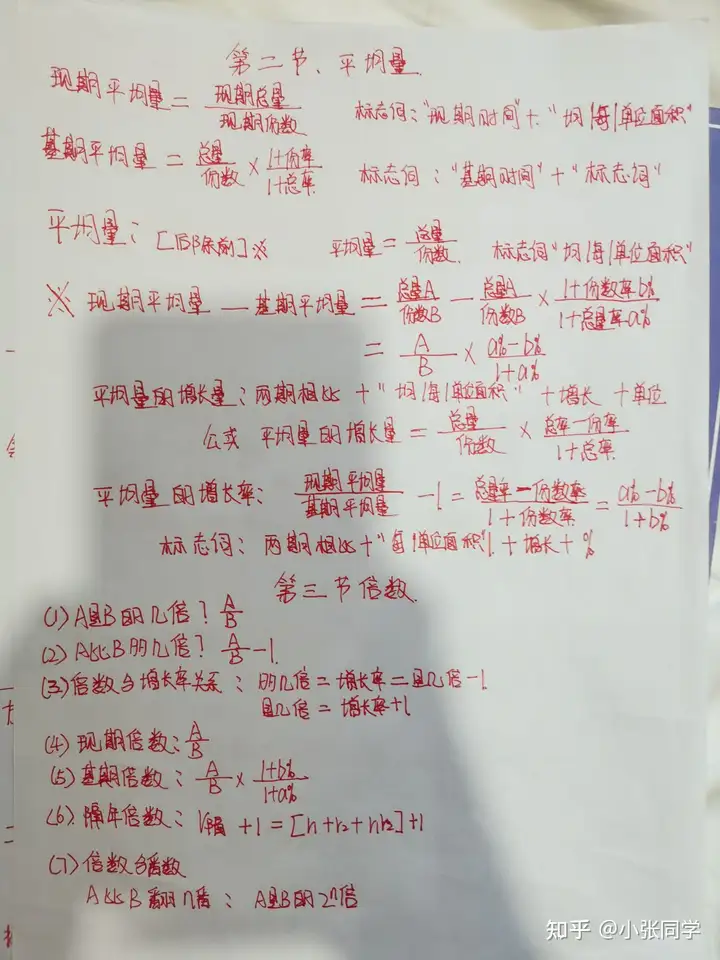 第二节、平均量
现期平均量 = 现期总量/现期份数 标志词:"现期时间"+"均/每/单位面积"
基期平均量 = 总量/份数 × 1+份率/1+总率 标志词:"基期时间"+"标志词"
平均量: [后÷前]※ 平均量 = 总量/份数 标志词"均/每/单位面积"
※ 现期平均量 — 基期平均量 = 总量A/份数B — 总量A/份数B × 1+份数率b%/1+总量率a%
= A/B × a%-b%/1+a%
平均量的增长量:两期相比+"均/每/单位面积"+增长+单位
公式 平均量的增长量 = 总量/份数 × 总率-份率/1+总率
平均量的增长率: 现期平均量/基期平均量 -1 = 总量率-份数率/1+份数率 = a%-b%/1+b%
标志词: 两期相比+"每/单位面积"+增长+%
第三节倍数
(1) A是B的几倍? A/B
(2) A比B的几倍? A/B -1
(3) 倍数与增长率关系: 的几倍=增长率=是几倍-1
是几倍=增长率+1
(4) 现期倍数: A/B
(5) 基期倍数: A/B × 1+b%/1+a%
(6) 隔年倍数: r隔+1=[r1+r2+r1r2]+1
(7) 倍数与番数
A比B翻n番: A是B的2ⁿ倍
知乎 @小张同学